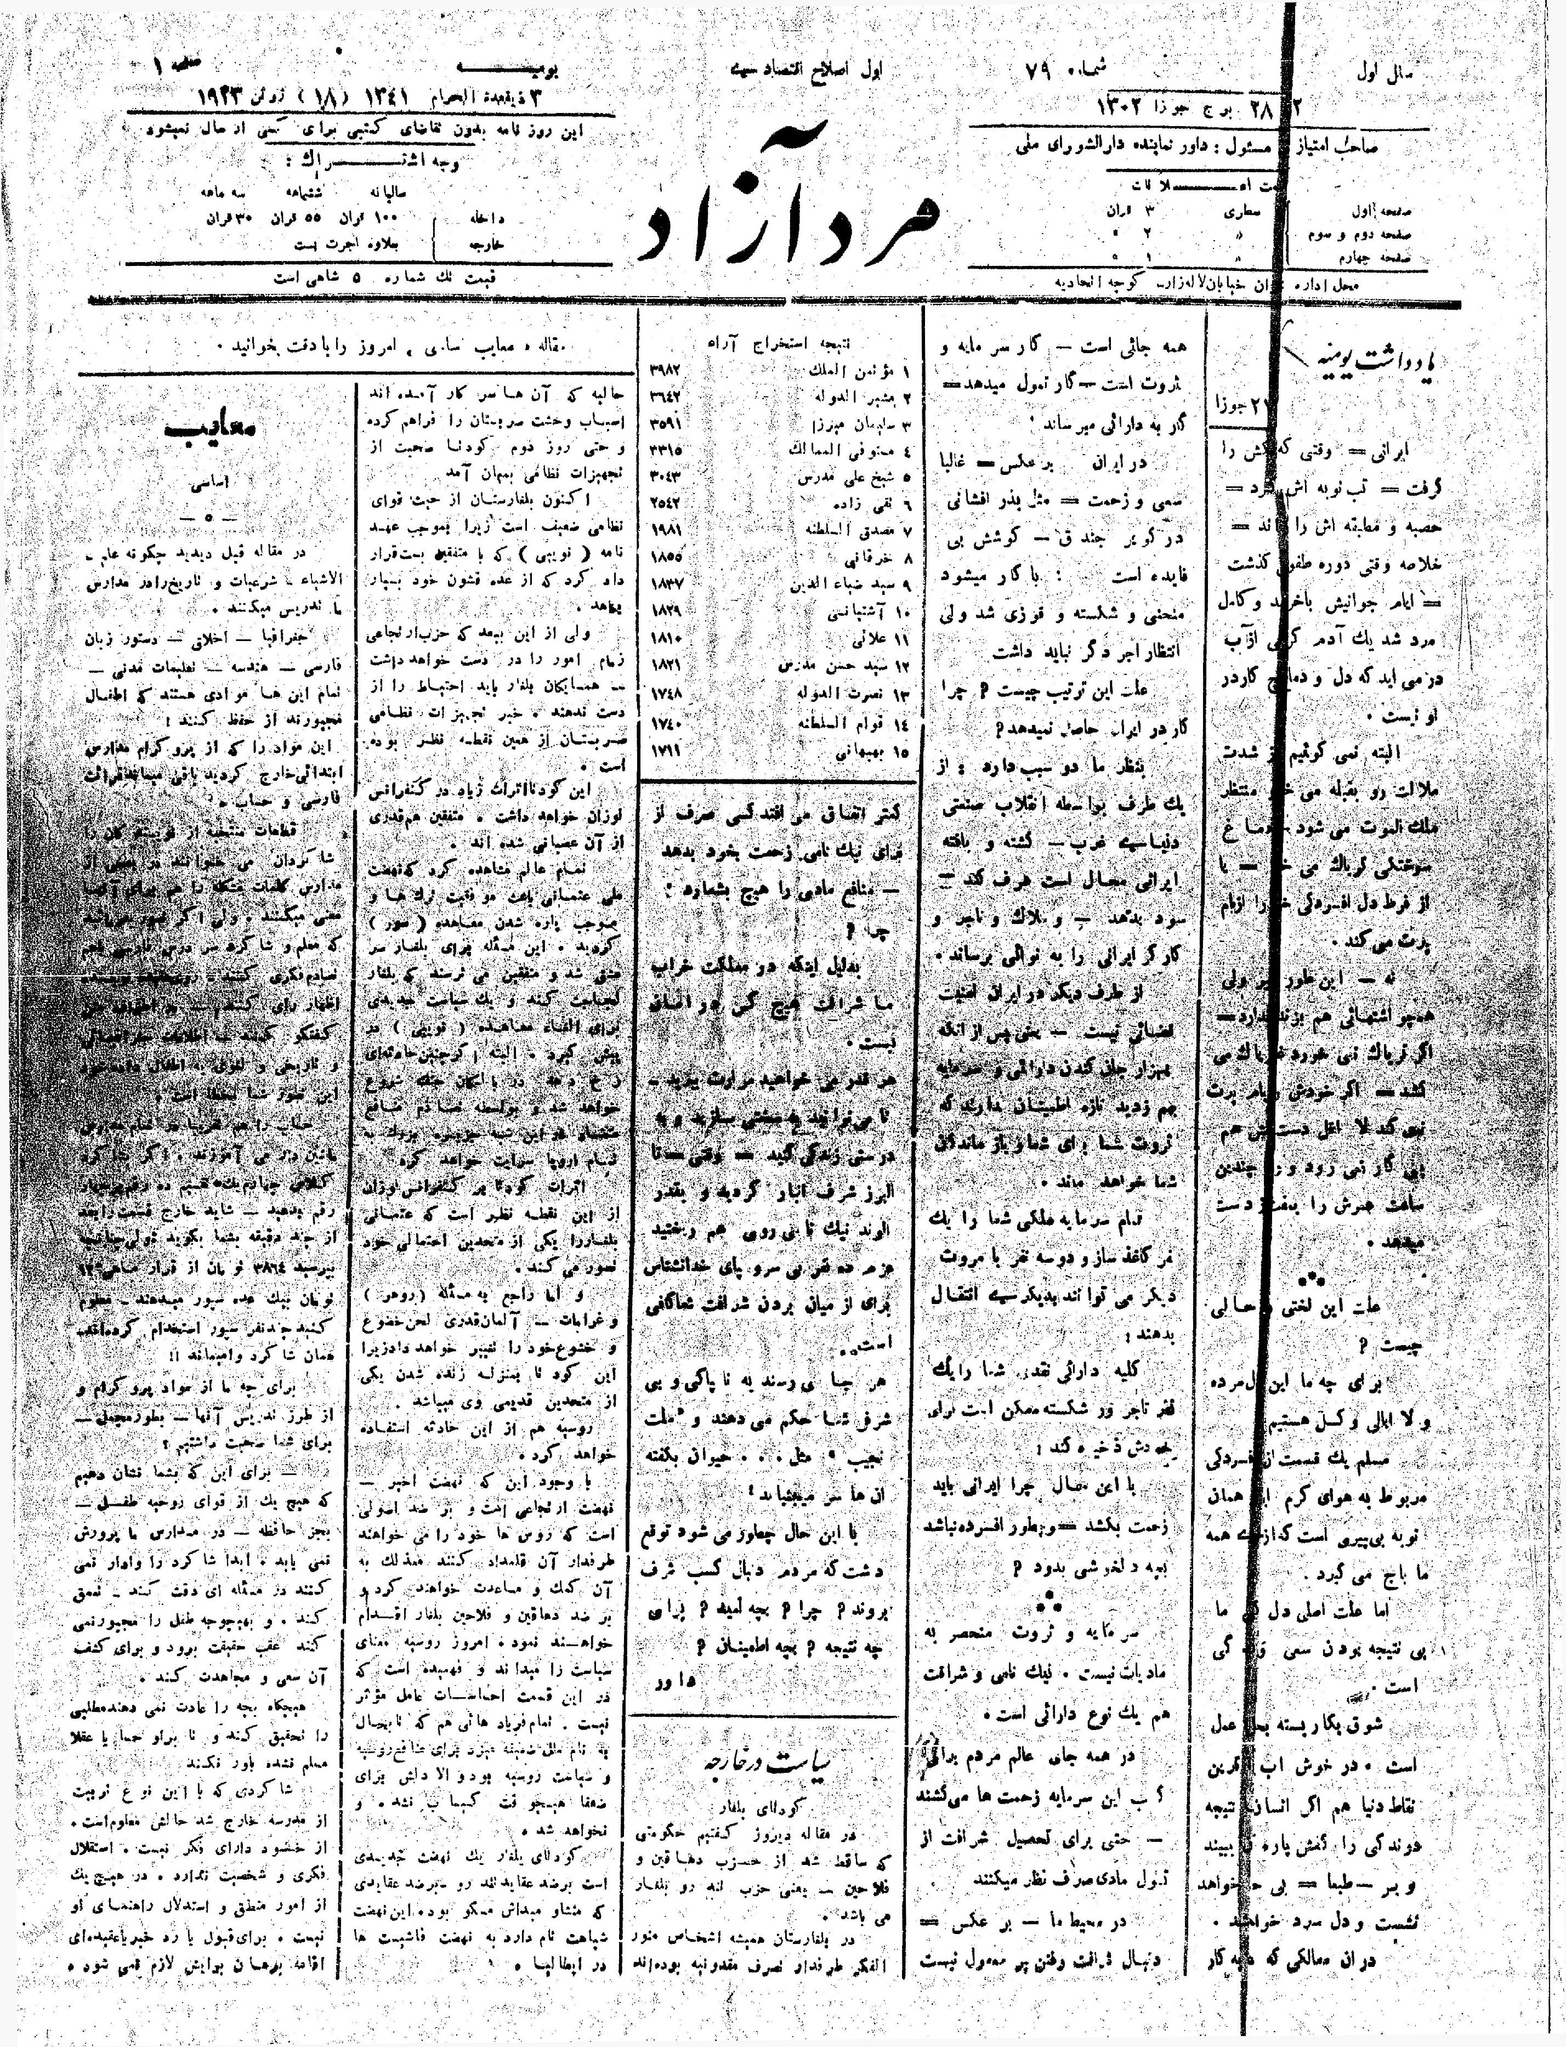 سال اول
شماره ۷۹
اول اصلاح اقتصادی
یومیه
صفحه ۱
۲۸ برج جوزا ۱۳۰۲
۳ ذیقعدة الحرام ۱۳۴۱ (۱۸) ژوئن ۱۹۲۳
صاحب امتیاز مسئول : داور نماینده دارالشورای ملی
صفحه اول سطری ۳ قران
صفحه دوم و سوم » ۲ »
صفحه چهارم » ۱ »
محل اداره خیابان لاله‌زار کوچه اتحادیه
مرد آزاد
این روز نامه بدون تقاضای کتبی برای کسی ارسال نمیشود
وجه اشتراك :
سالیانه ششماهه سه ماهه
داخله ۱۰۰ قران ۵۵ قران ۳۰ قران
خارجه بعلاوه اجرت پست
قیمت تك شماره ۵ شاهی است
یادداشت یومیه
۲۷ جوزا
ایرانی = وقتی
گرفت = تب نوبه اش
حصبه و مطبقه اش را
خلاصه وقتی دوره طفولیت گذشت
= ایام جوانیش بآخر و کامل
مرد شد یك آدم
در می آید که دل و دماغ کار در
او نیست .
البته نمی گوئیم از شدت
ملالت رو بقبله می منتظر
ملك الموت می شود
سوختگی تریاك می — یا
از فرط دل افسردگی خود را از بام
پرت می کند .
نه — این طور ولی
همچو اشتهائی هم ندارد —
اگر تریاك نمی خورد می
کشد — اگر خودش از بام پرت
نمی کند لا اقل دستش هم
پی کار نمی رود و چندین
ساعت عمرش را بمفت از دست
میدهد .
علت این لختی و حالی
چیست ؟
برای چه ما این مرده
و لا ابالی و کسل هستیم
مسلم یك قسمت از افسردگی
مربوط به هوای گرم این همان
نوبه بی‌پیری است که از همه
ما باج می گیرد .
اما علت اصلی دل ما
بی نتیجه بودن سعی
است .
شوق بکار بسته عمل
است . در خوش آب ترین
نقاط دنیا هم اگر انسان نتیجه
دوندگی را کفش پاره ببیند
و بس — طبعا = بی خواهد
نشست و دل سرد خواهد شد .
در آن ممالکی که کار
همه جائی است — کار سرمایه و
ثروت است — کار تمول میدهد =
کار به دارائی میرساند :
در ایران بر عکس — غالبا
سعی و زحمت = مثل بذر افشانی
در کویر جندق — کوشش بی
فایده است : با کار میشود
منحنی و شکسته و قوزی شد ولی
انتظار اجر دگر نباید داشت
علت این ترتیب چیست ؟ چرا
کار در ایران حاصل نمیدهد ؟
بنظر ما دو سبب دارد : از
یك طرف بواسطه انقلاب صنعتی
دنیای غرب — کشته و بافته
ایرانی محال است صرف کند =
سود بدهد — و ملاك و تاجر و
کارگر ایرانی را به نوائی برساند .
از طرف دیگر در ایران امنیت
قضائی نیست — یعنی پس از آنکه
بهزار جان کندن دارائی و سرمایه
بهم زدید تازه اطمینان ندارید که
ثروت شما برای شما و بازماندگان
شما خواهد ماند .
تمام سرمایه ملکی شما را یك
نفر کاغذ ساز و دو سه نفر با مروت
دیگر می توانند بدیگری انتقال
بدهند :
کلیه دارائی نقدی شما را یك
نفر تاجر ور شکسته ممکن است برای
خودش ذخیره کند :
با این حال چرا ایرانی باید
زحمت بکشد = و چطور افسرده نباشد
بچه دلخوشی بدود ؟
سرمایه و ثروت منحصر به
مادیات نیست . نیك نامی و شرافت
هم یك نوع دارائی است .
در همه جای عالم مردم برای
کسب این سرمایه زحمت ها می‌کشند
— حتی برای تحصیل شرافت از
تمول مادی صرف نظر میکنند .
در محیط ما — بر عکس =
دنبال شرافت رفتن پر معمول نیست
نتیجه استخراج آراء
۱ مؤتمن الملك ۳۹۸۲
۲ مشیر الدوله ۳۶۴۲
۳ سلیمان میرزا ۳۵۹۱
۴ مستوفی الممالك ۳۳۱۵
۵ شیخ علی مدرس ۳۰۴۳
۶ تقی زاده ۲۵۴۲
۷ مصدق السلطنه ۱۹۸۱
۸ خرقانی ۱۸۵۵
۹ سید ضیاء الدین ۱۸۳۷
۱۰ آشتیانی ۱۸۲۹
۱۱ علائی ۱۸۱۰
۱۲ سید حسن مدرس ۱۸۲۱
۱۳ نصرت الدوله ۱۷۴۸
۱۴ قوام السلطنه ۱۷۴۰
۱۵ بهبهانی ۱۷۱۱
کمتر اتفاق می افتد کسی صرف از
برای نیك نامی زحمت بخود بدهد
— منافع مادی را هیچ بشمارد :
چرا ؟
بدلیل اینکه در مملکت خراب
ما شرافت هیچ کس در امان
نیست .
هر قدر می خواهید مرارت ببرید —
تا می‌توانید به سختی بسازید و به
درستی زندگی کنید — وقتی — تا
البرز شرف انبار کردید و بقدر
الوند نیك نامی روی هم ریختید
عزم ده نفر بی سرو پای خدانشناس
برای از میان بردن شرافت شما کافی
است ..
هر جا می رسند به ناپاکی و بی
شرفی شما حکم می دهند و «ملت
نجیب» مثل ... حیوان بگفته
آن ها سر میجنباند !
با این حال چطور می شود توقع
داشت که مردم دنبال کسب شرف
بروند ؟ چرا ؟ بچه امید ؟ برای
چه نتیجه ؟ بچه اطمینان ؟
داور
سیاست در خارجه
کودتای بلغار
در مقاله دیروز گفتیم حکومتی
که ساقط شد از حزب دهاقین و
فلاحین — یعنی حزب تند رو بلغار
می باشد .
در بلغارستان همیشه اشخاص منور
الفکر طرفدار تصرف مقدونیه بوده‌اند
مقاله «معایب اساسی» امروز را با دقت بخوانید .
حالیه که آن ها سر کار آمده اند
اسباب وحشت صربستان را فراهم کرده
و حتی روز دوم کودتا صحبت از
تجهیزات نظامی بمیان آمد
اکنون بلغارستان از حیث قوای
نظامی ضعیف است زیرا بموجب عهد
نامه (نویی) که با متفقین بست قرار
داد کرد که از عده قشون خود بسیار
بکاهد .
ولی از این ببعد که حزب ارتجاعی
زمام امور را در دست خواهد داشت
— همسایگان بلغار باید احتیاط را از
دست ندهند . خبر تجهیزات نظامی
صربستان از همین نقطه نظر بوده
است .
این کودتا اثرات زیاد در کنفرانس
لوزان خواهد داشت . متفقین هم قدری
از آن عصبانی شده اند .
تمام عالم مشاهده کرد که نهضت
ملی عثمانی باعث موفقیت ترك ها و
موجب پاره شدن معاهده (سور)
گردید . این مسئله برای بلغار سر
مشق شد و متفقین می ترسند که بلغار
عصبانیت کند و یك سیاست جدیدی
برای الغاء معاهده (نویی) در
پیش گیرد . البته اگر چنین حادثه‌ای
رخ دهد در بالکان جنك شروع
خواهد شد و بواسطه تصادم منافع
متضاد در این شبه جزیره بزودی به
تمام اروپا سرایت خواهد کرد .
اثرات کودتا بر کنفرانس لوزان
از این نقطه نظر است که عثمانی
بلغار را یکی از متحدین احتمالی خود
تصور می کند .
و اما راجع به مسئله (روهر)
و غرامات — آلمان قدری لحن خضوع
و خشوع خود را تغییر خواهد داد زیرا
این کودتا بمنزله زنده شدن یکی
از متحدین قدیمی وی میباشد .
روسیه هم از این حادثه استفاده
خواهد کرد .
با وجود این که نهضت اخیر —
نهضت ارتجاعی است و بر ضد اصولی
است که روس ها خود را می خواهند
طرفدار آن قلمداد کنند معذلك به
آن کمك و مساعدت خواهند کرد و
بر ضد دهاقین و فلاحین بلغار اقدام
خواهند نمود . امروز روسیه معنای
سیاست را میداند و فهمیده است که
در این قسمت احساسات عامل مؤثر
نیست . تمام فریاد هائی هم که تا بحال
به نام ملل ضعیفه میزد برای منافع روسیه
و سیاست روسیه بود و الا دلش برای
ضعفا هیچوقت کباب نشد . و
نخواهد شد .
کودتای بلغار یك نهضت جدیدی
است بر ضد عقاید تند رو — بر ضد عقایدی
که منشاء و مبدأش مسکو بوده . این نهضت
شباهت تام دارد به نهضت فاشیست ها
در ایطالیا .
معایب
اساسی
— ۵ —
در مقاله قبل دیدید چگونه علم —
الاشیاء — شرعیات و تاریخ را در مدارس
ما تدریس میکنند .
جغرافیا — اخلاق — دستور زبان
فارسی — هندسه — تعلیمات مدنی —
تمام این ها موادی هستند که اطفال
مجبورند از حفظ کنند !
این مواد را که از پروگرام مدارس
ابتدائی خارج کردید باقی میماند قرائت
فارسی و حساب .
قطعات منتخبه از نویسندگان را
شاگردان می خوانند در بعضی از
مدارس کلمات مشکله را هم برای آنها
معنی میکنند . ولی اگر تصور میکنید
که معلم و شاگرد سر درس فارسی باهم
تصادم فکری کنند
اظهار رأی کنند
گفتگو کنند — اطلاعات جغرافیائی
و تاریخی و لغوی به اطفال داده شود
این تصور شما بیجا است .
حساب را هم تقریبا در تمام مدارس
ماشین وار می آموزند . اگر بشاگرد
کلاس چهارم یك تقسیم ده رقم بچهار
رقم بدهید — شاید خارج قسمت را بعد
از چند دقیقه بشما بگوید ولی چنانچه
بپرسید ۳۸۶۴ تومان از قرار ماهی ۱۲
تومان بیك عده سپور میدهند — معلوم
کنید چند نفر سپور استخدام کرده‌اند
همان شاگرد وامیماند !!
برای چه ما از مواد پروگرام و
از طرز تدریس آنها — بطور مجمل —
برای شما صحبت داشتیم ؟
— برای این که بشما نشان دهیم
که هیچ یك از قوای روحیه طفل —
بجز حافظه — در مدارس ما پرورش
نمی یابد . ابدا شاگرد را وادار نمی
کنند در مسئله ای دقت کند — تعمق
کند . و بهیچوجه طفل را مجبور نمی
کنند عقب حقیقت برود و برای کشف
آن سعی و مجاهدت کند .
هیچگاه بچه را عادت نمی دهند مطلبی
را تحقیق کند و تا بر او حسا یا عقلا
مسلم نشده باور نکند
شاگردی که با این نوع تربیت
از مدرسه خارج شد حالش معلوم است .
از خود دارای فکر نیست . استقلال
فکری و شخصیت ندارد . در هیچ یك
از امور منطق و استدلال راهنمای او
نیست . برای قبول یا رد خبر یا عقیده‌ای
اقامه برهان برایش لازم نمی شود .